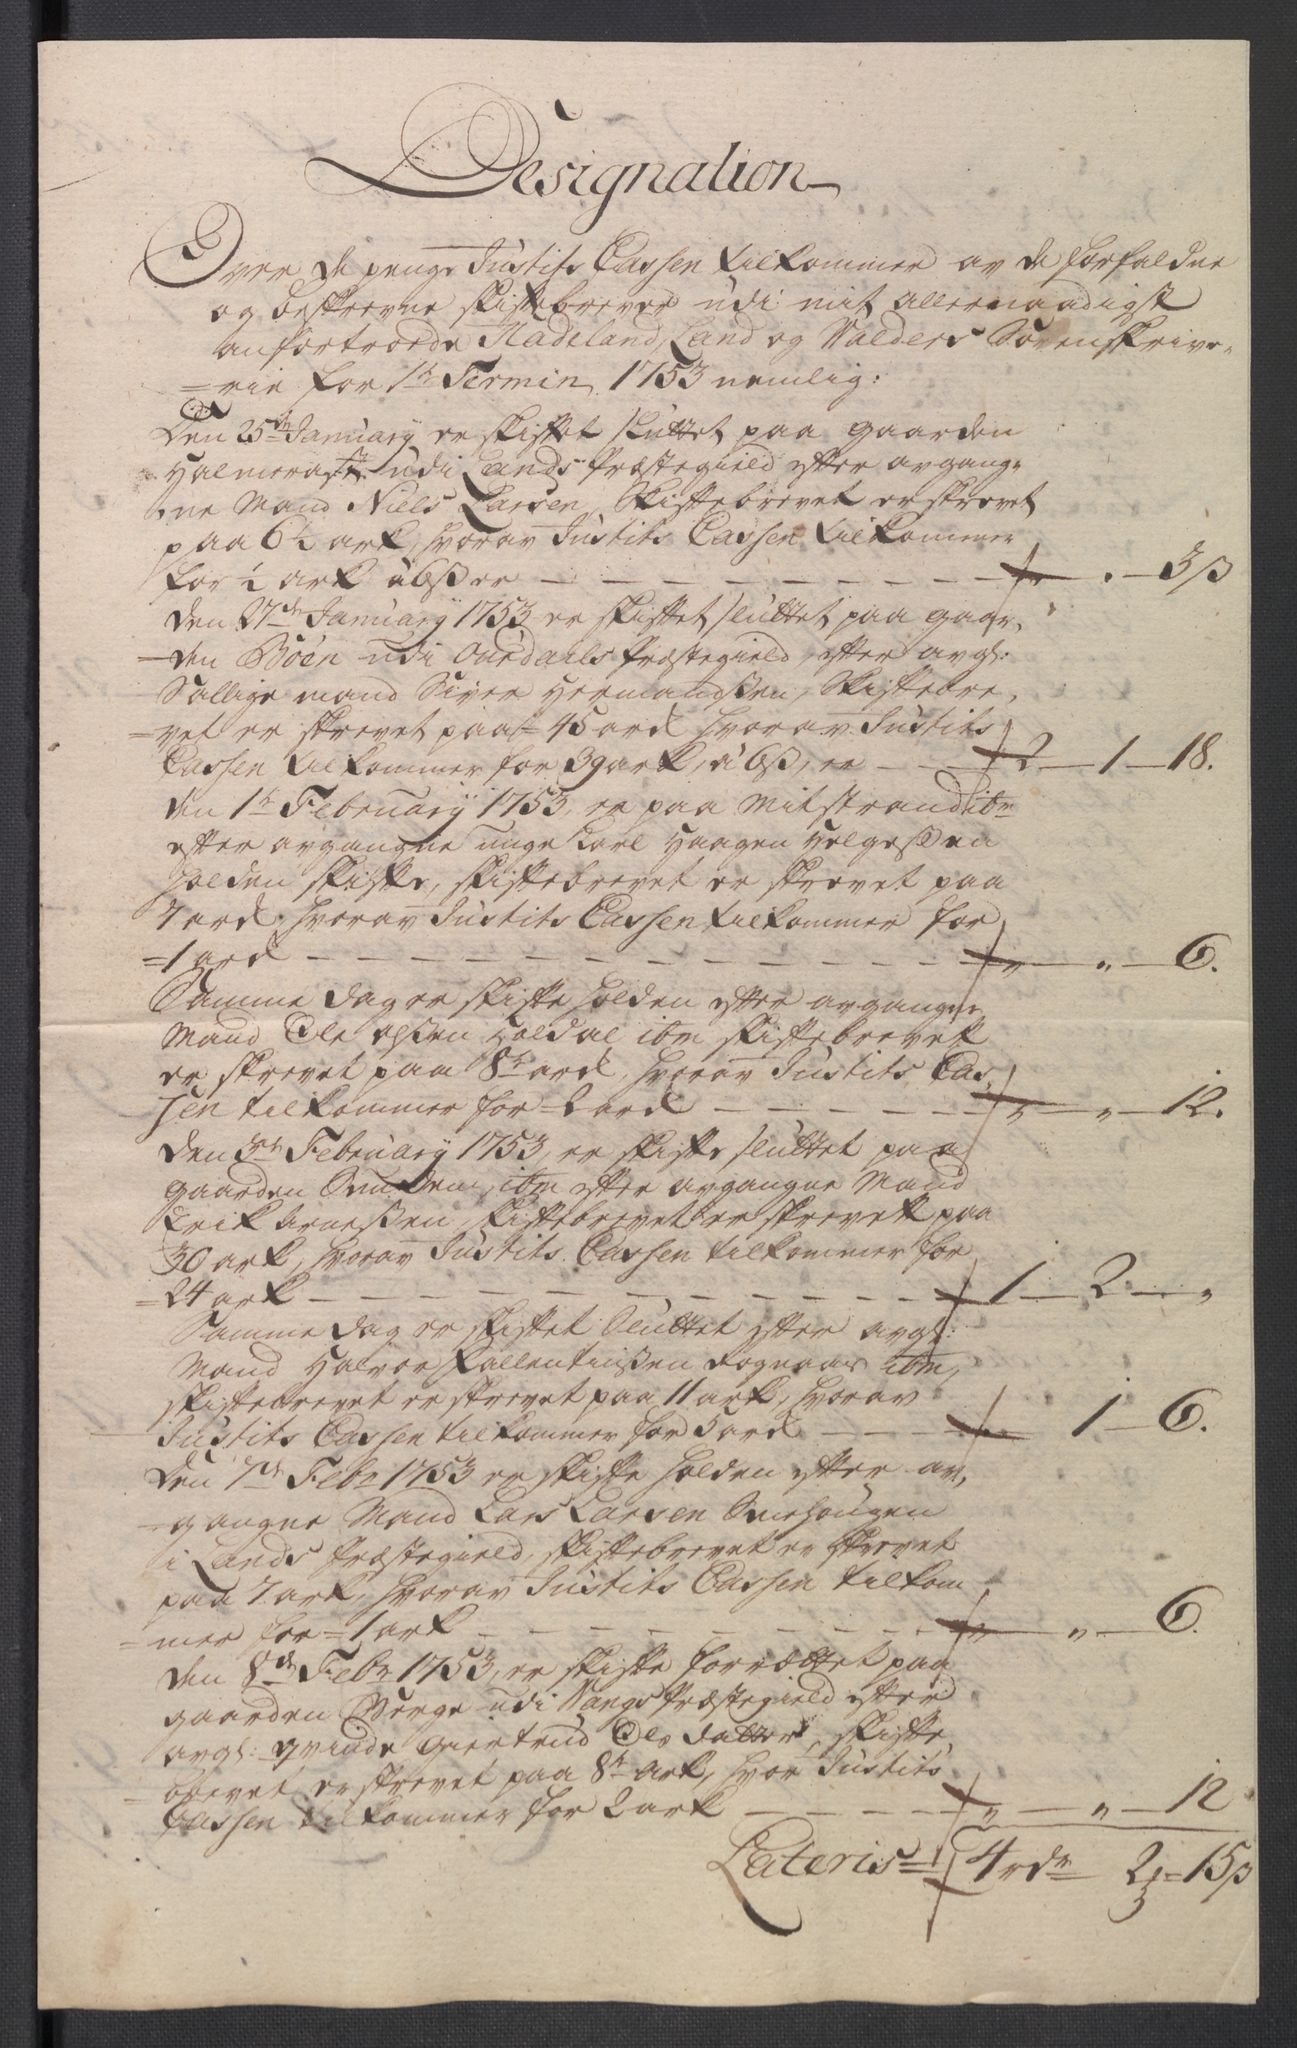 Designation
Over de penge Justits Cassen tilkommer av de forfaldne
og beskrevne skiftebrever udi mit allernaadigst
anfortroede Hadeland, Land og Valders Sorenskrive,
=rie for 1te Termin 1753 nemlig:
Den 25de January er skiftet sluttet paa gaarden
Halmerast udi Lands Præstegield efter avgang,
ne Mand Niels Larsen, Skiftebrevet er skrevet
paa 6½ ark, hvorav Justits Cassen tilkommer
for ½ ark à 6ß er — — — 3ß
Den 27de January 1753 er skiftet sluttet paa gaar,
=den Böen udi Ourdahls Præstegield, efter avg:
Sallige mand Siver Hermandßen, Skiftebre,
=vet er skrevet paa 45 ark hvorav Justits
Cassen tilkommer for 39 ark, à 6ß, er — 2 — 1 — 18.
den 1te February 1753, er paa Mitstrand ibm
efter avgangne unge Karl Haagen Helgeßen
holden skifte, skiftebrevet er skrevet paa
7 ark, hvorav Justits Cassen tilkommer for
=1 ark — — — " — " — 6.
Samme dag er skifte holden efter avgangne
Mand Ole Olßen Holdal ibm skiftebrevet
er skrevet paa 8te ark, hvorav Justits Cas,
sen tilkommer for = 2 ark — — — " — " — 12.
Den 3de February 1753, er skifte sluttet paa
gaarden ibm efter avgangne Mand
Erik Arneßen, skiftebrevet er skrevet paa
30 ark, hvorav Justits Cassen tilkommer for
=24 ark — — — 1 — 2 — "
Samme dag er skiftet Sluttet efter avg:
Mand Halvor Kallentinßen ibm,
skiftebrevet er skrevet paa 11 ark, hvorav
Justits Cassen tilkommer for 5 ark — — 1 — 6.
Den 7de Febr 1753 er skifte holden efter av,
=gangne Mand Lars Larsen
i Lands Præstegield, skiftebrevet er skrevet
paa 7 ark, hvorav Justits Cassen tilkom
=mer for = 1 ark — — — " — " — 6.
den 8de Febr 1753, er skifte forrættet paa
gaarden Berge udi Vangs Præstegield efter
avg: qvinde Giertrud Ols datter, skifte,
=brevet er skrevet paa 8te ark, hvor Justits
Cassen tilkommer for 2 ark — — " — " — 12
Lateris = 4 rdr 2 = 15ß